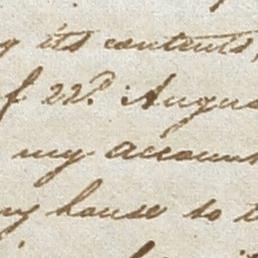 its contents,
of 22d. Augus
my account
my house so t